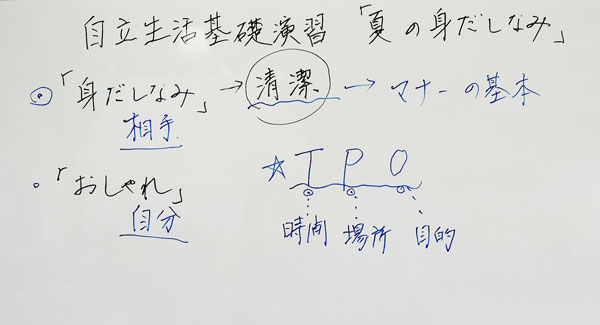 自立生活基礎演習「夏の身だしなみ」
◎「身だしなみ」→清潔→マナーの基本
相手
☆TPO
。「おしゃれ」
自分
時間 場所 目的